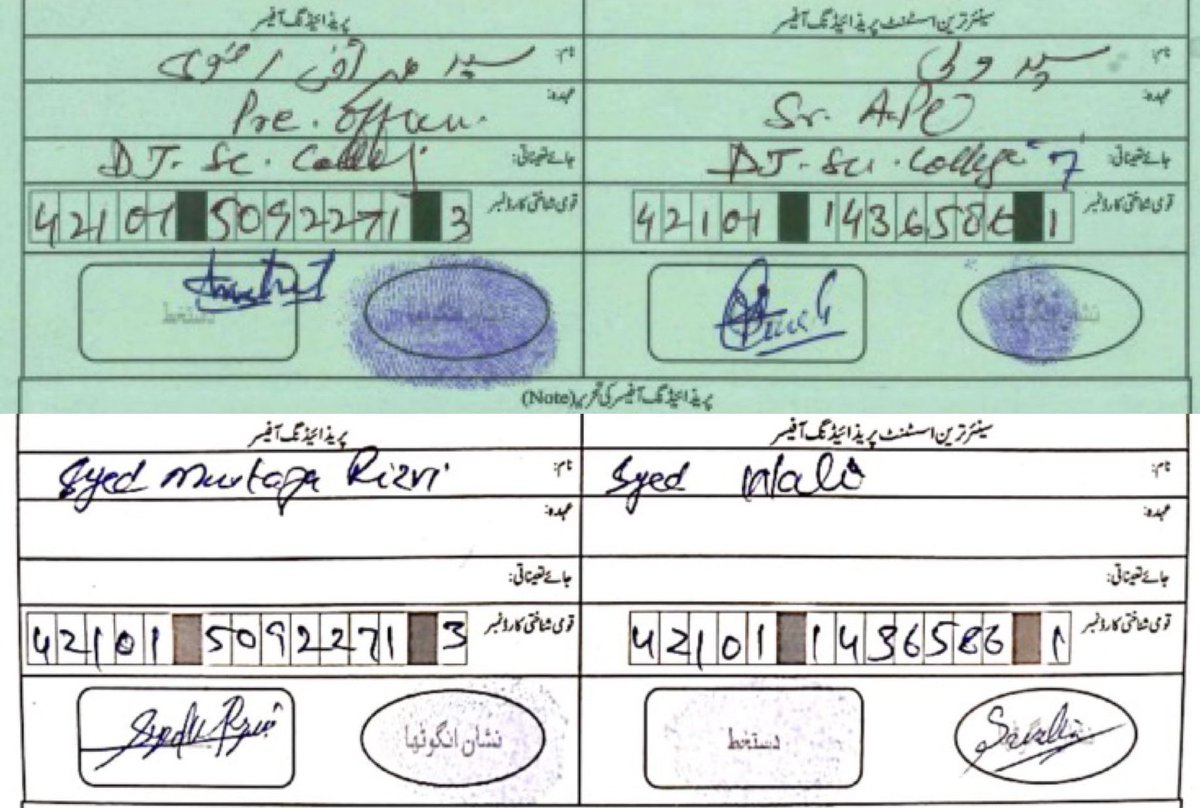 سینئر ترین اسسٹنٹ پریذائیڈنگ آفیسر پریذائیڈنگ آفیسر
نام: سید ولی نام: سید
عہدہ: Sr. A.P.O عہدہ: Pre. Officer.
جائے تعیناتی: DJ. Sci. College 7 جائے تعیناتی: DJ. Sc. College
قومی شناختی کارڈ نمبر 42101 1436586 1 قومی شناختی کارڈ نمبر 42101 5092271 3
نشان انگوٹھا نشان انگوٹھا دستخط
پریذائیڈنگ آفیسر کی تحریر (Note)
سینئر ترین اسسٹنٹ پریذائیڈنگ آفیسر پریذائیڈنگ آفیسر
نام: Syed Wali نام: Syed Murtaza Rizvi
عہدہ: عہدہ:
جائے تعیناتی: جائے تعیناتی:
قومی شناختی کارڈ نمبر 42101 1436586 1 قومی شناختی کارڈ نمبر 42101 5092271 3
دستخط نشان انگوٹھا